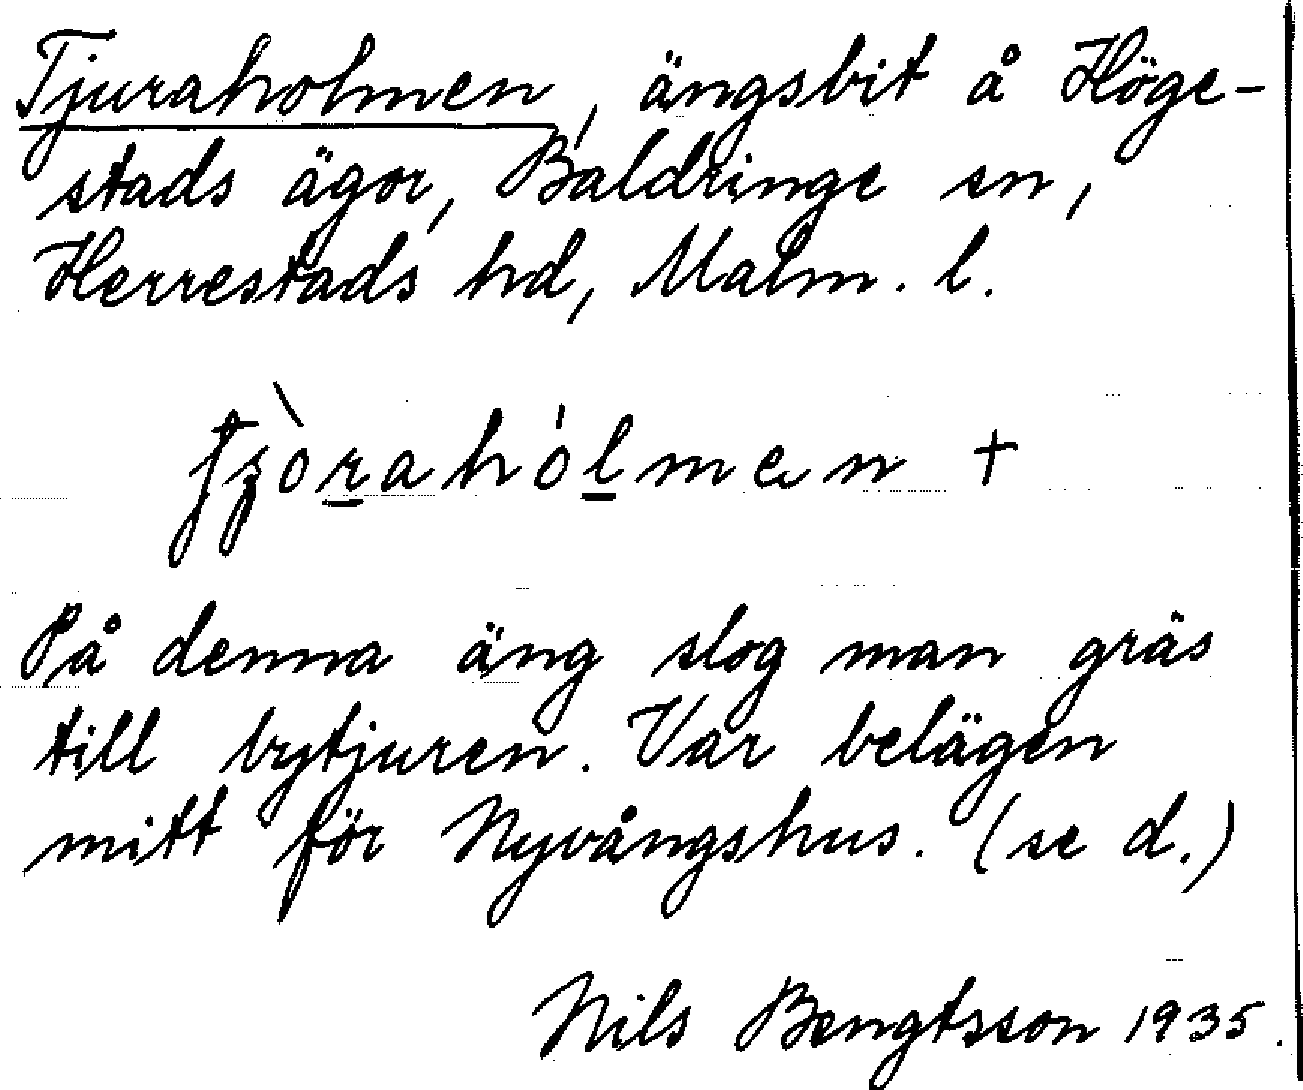 Tjuraholmen, ängsbit å Höge-
stads ägor, Baldringe sn,
Herrestads hd, Malm. l.
På denna äng slog man gräs
till bytjuren. Var belägen
mitt för Nyvångshus. (se d.)
Nils Bengtsson 1935.